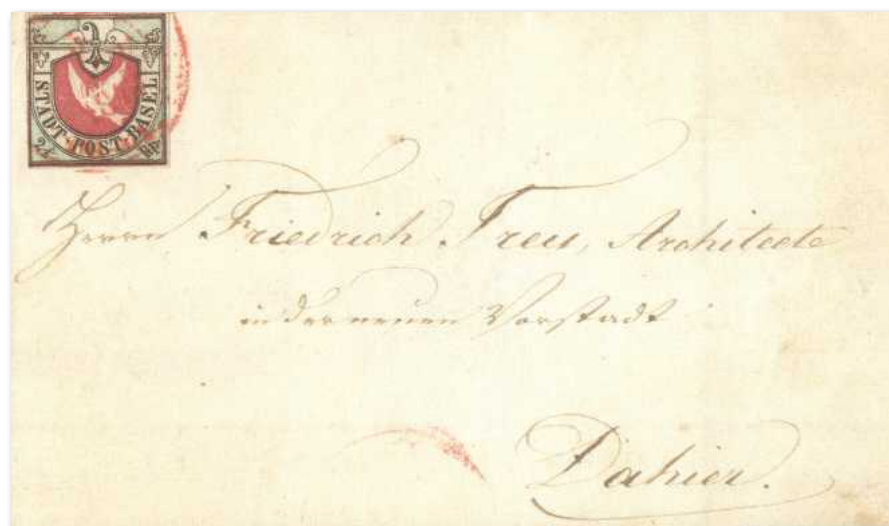 STADT·POST·BASEL
2½ Rp.
Herrn Friedrich Treu, Architecte
in der neuen Vorstadt
Dahier.